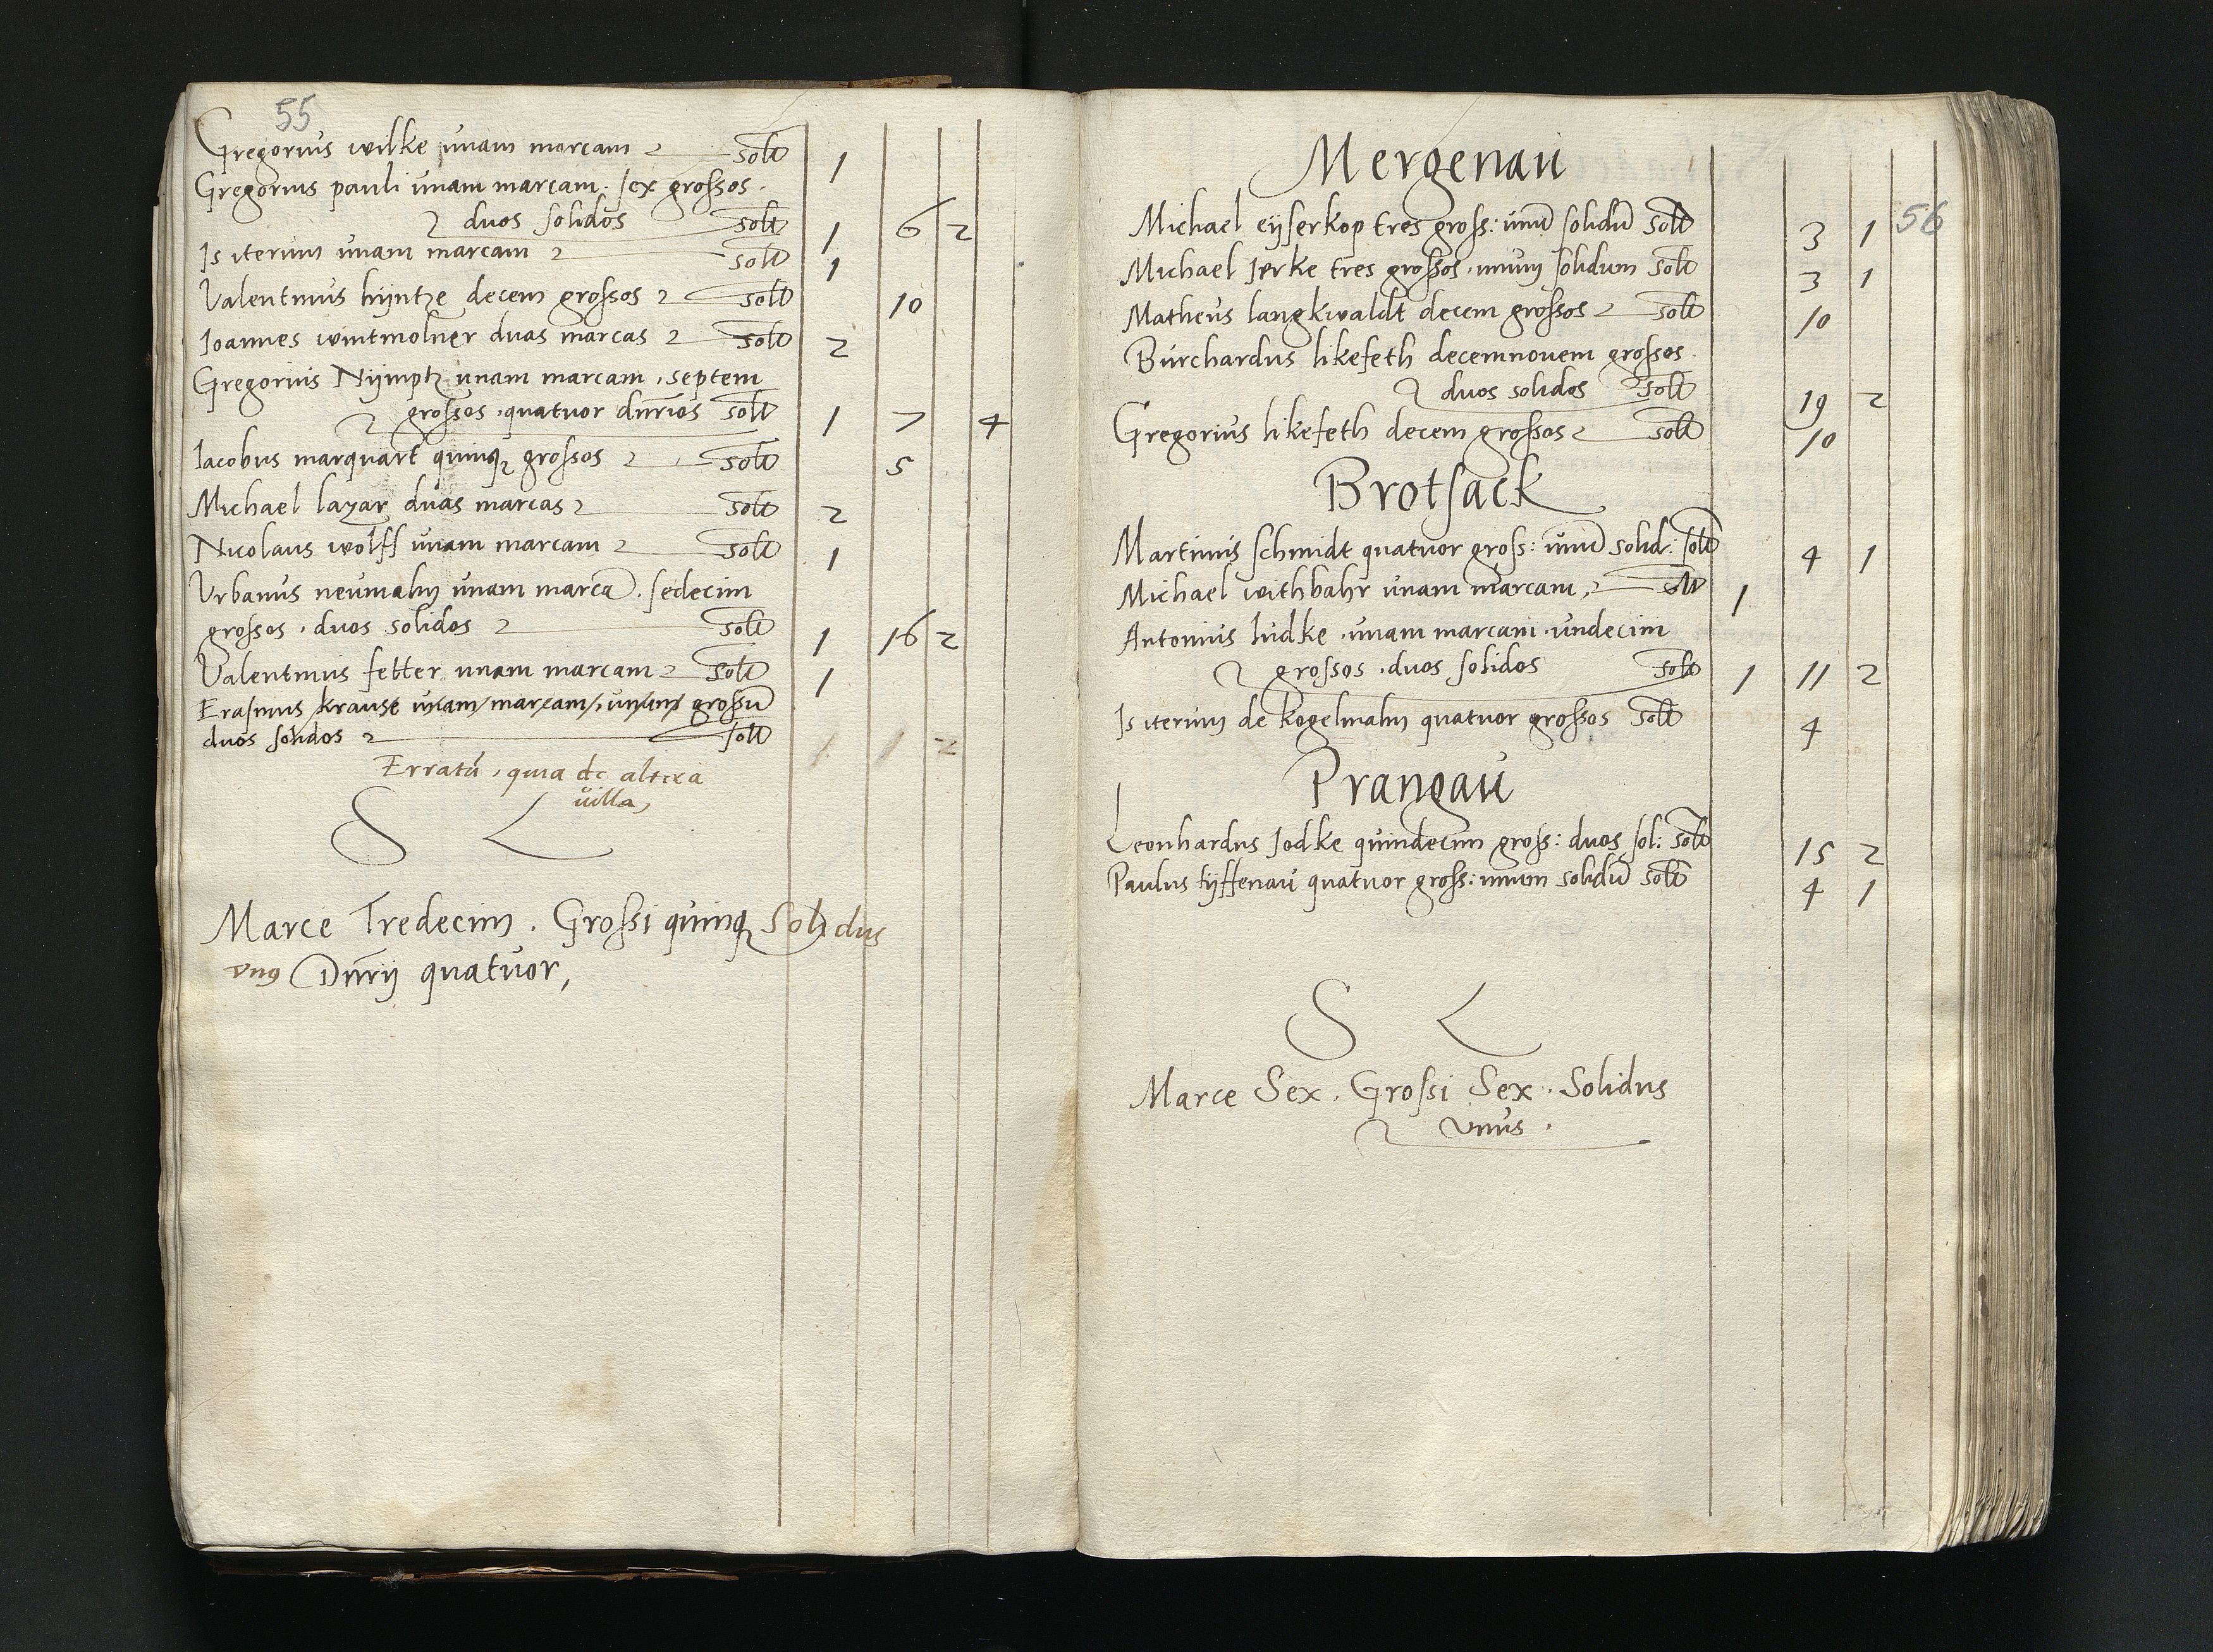 55
Gregorius wilke unam marcam solt 1
Gregorius pauli unam marcam. sex grossos.
duos solidos solt 1 6 2
Is iterum unam marcam solt 1
Valentinus hijntze decem grossos solt 10
Ioannes wintmolner duas marcas solt 2
Gregorius Nijmptz unam marcam, septem
grossos, quatuor dnrios solt 1 7 4
Iacobus marquart quinq grossos solt 5
Michael lazar duas marcas solt 2
Nicolaus wolff unam marcam solt 1
Urbanus neumahn unam marcā. sedecim
grossos, duos solidos solt 1 16 2
Valentinus fetter unam marcam solt 1
Erasmus krause unam marcam, unum grossū
duos solidos solt 1 1 2
Erratū, quia de altera
villa,
S L
Marce Tredecim. Grossi quinq Solidus
vng Dnrij quatuor,
Mergenau
Michael eijserkop tres gross: unū solidū solt 3 1 56
Michael Jerke tres grossos, unum solidum solt 3 1
Matheus langkwaldt decem grossos solt 10
Burchardus likefeth decemnouem grossos.
duos solidos solt 19 2
Gregorius likefeth decem grossos solt 10
Brotsack
Martinus schmidt quatuor gross: unū solid: solt 4 1
Michael withbahr unam marcam, solt 1
Antonius ludke, unam marcam, undecim
grossos, duos solidos solt 1 11 2
Is iterum de kogelmahn quatuor grossos solt 4
Prangau
Leonhardus Jodke quindecim gross: duos sol: solt 15 2
Paulus tijffenau quatuor gross: unum solidū solt 4 1
S L
Marce Sex. Grossi Sex. Solidus
vnus.